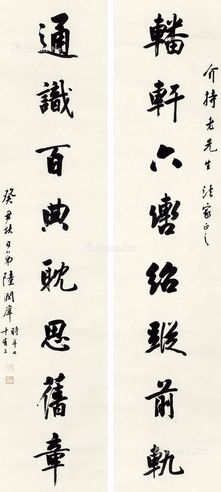 介持老先生法家正之
轓軒六轡紹蹤前軌
通識百典耽思舊章
癸丑秋日弟陸潤庠
時年七十有三